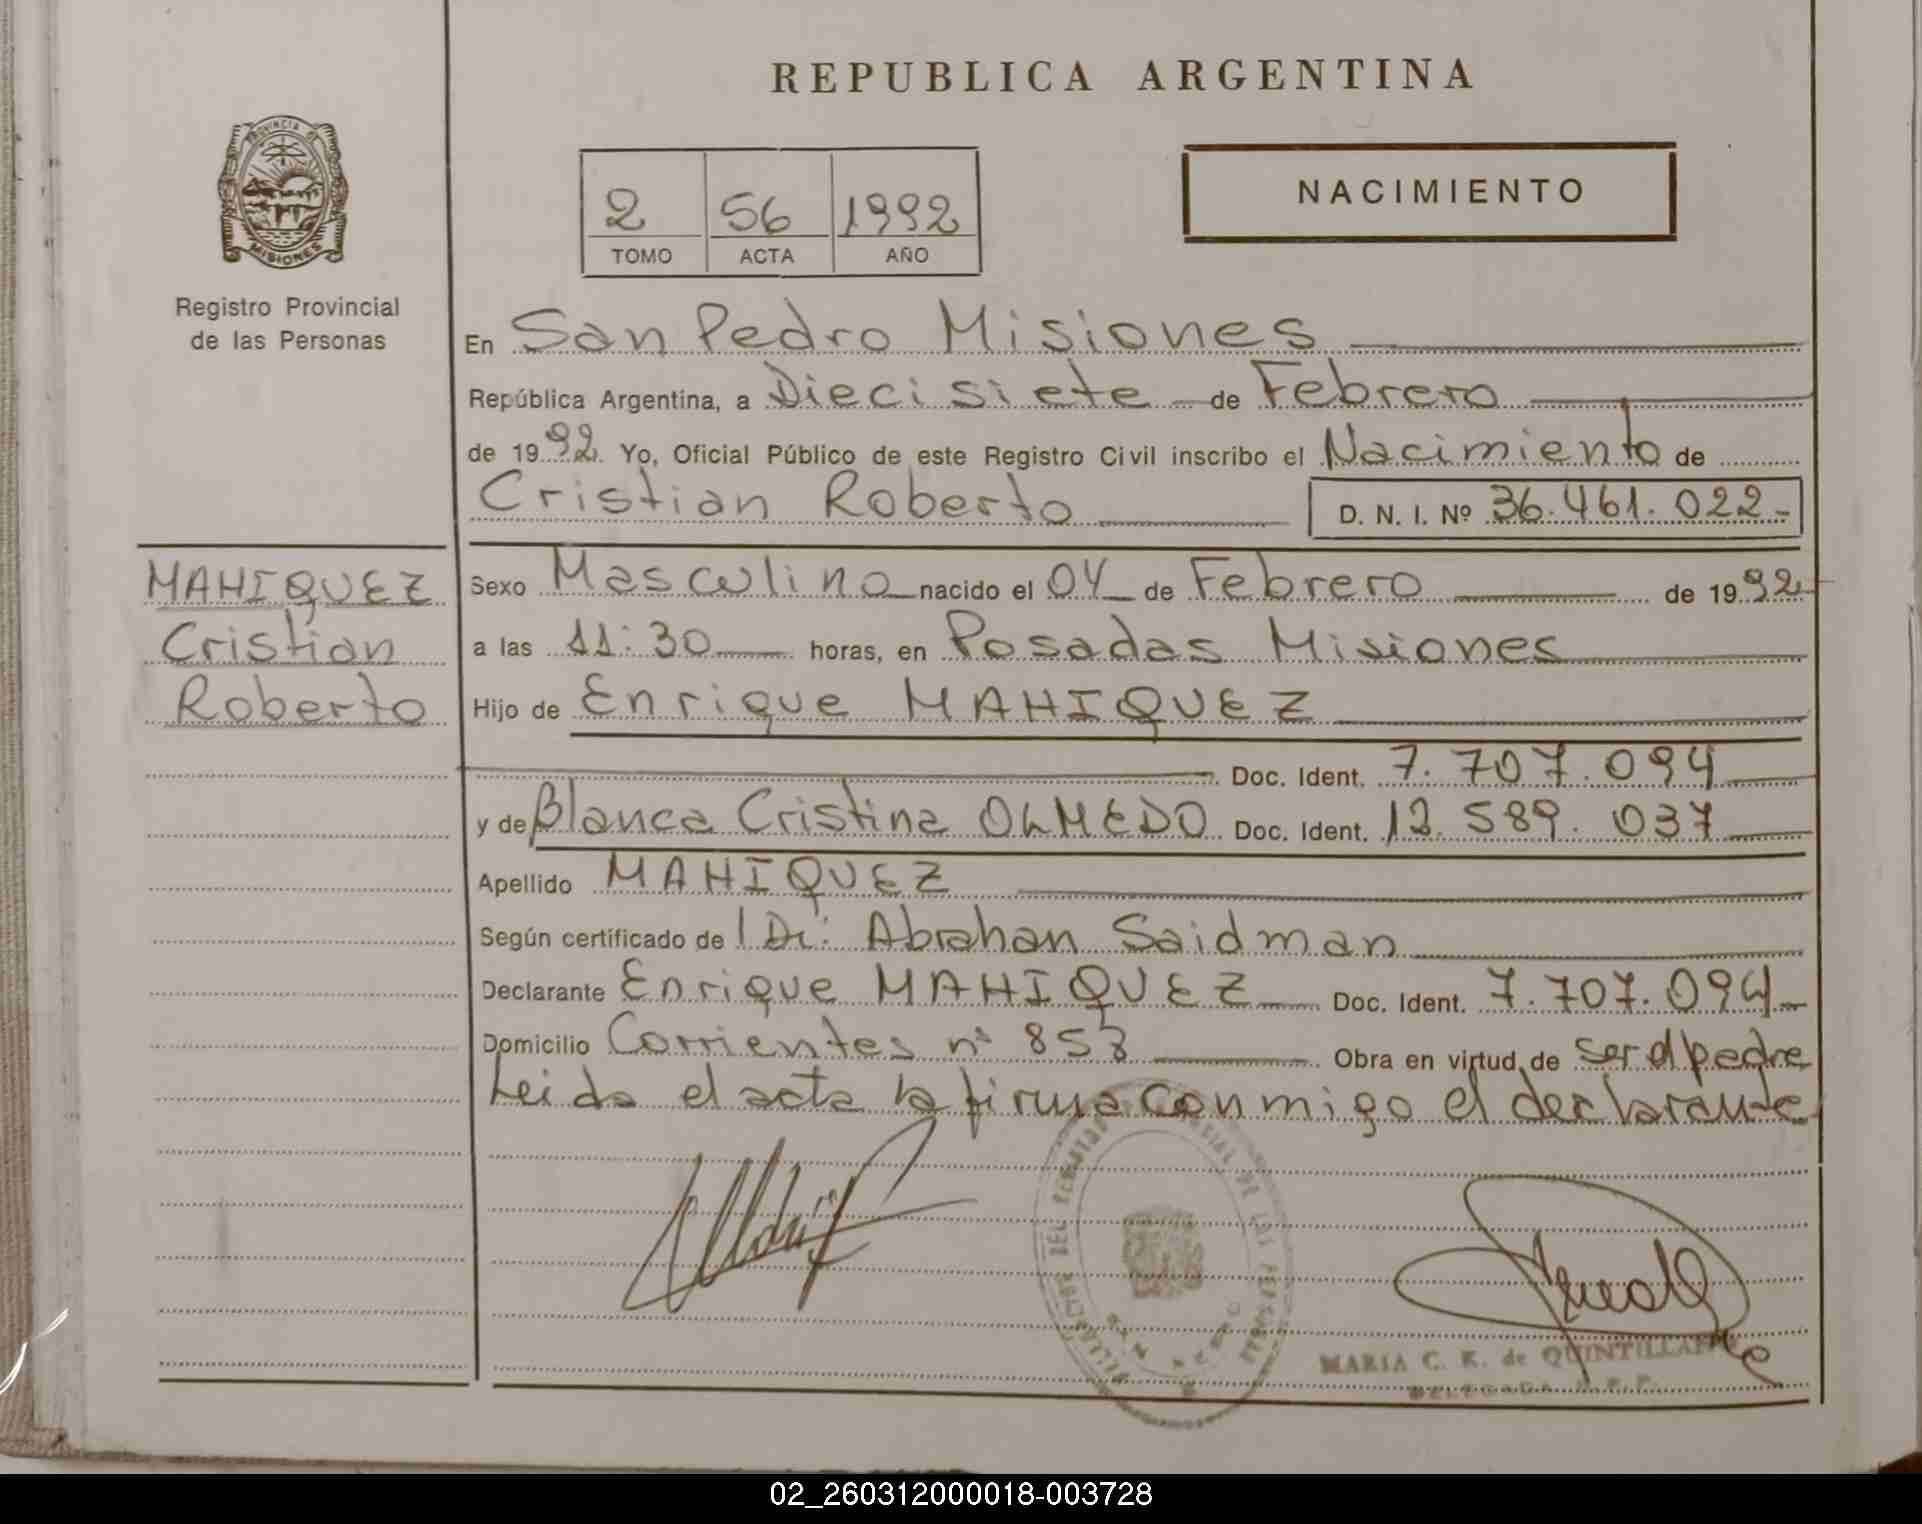 REPUBLICA ARGENTINA
PROVINCIA DE
MISIONES
Registro Provincial
de las Personas
2 56 1992
TOMO ACTA AÑO
NACIMIENTO
En San Pedro Misiones
República Argentina, a Diecisiete de Febrero
de 1992 Yo, Oficial Público de este Registro Civil inscribo el Nacimiento de
Cristian Roberto D. N. I. Nº 36.461.022-
MAHIQUEZ
Cristian
Roberto
Sexo Masculino nacido el 04 de Febrero de 1992
a las 11:30 horas, en Posadas Misiones
Hijo de Enrique MAHIQUEZ
Doc. Ident. 7.707.094
y de Blanca Cristina OLMEDO Doc. Ident. 12.589.037
Apellido MAHIQUEZ
Según certificado de Dr. Abrahan Saidman
Declarante Enrique MAHIQUEZ Doc. Ident. 7.707.094
Domicilio Corrientes nº 853 Obra en virtud de ser el padre
Leida el acta la firma conmigo el declarante
MARIA C. K. de
DELEGADA R.P.P.
02_260312000018-003728